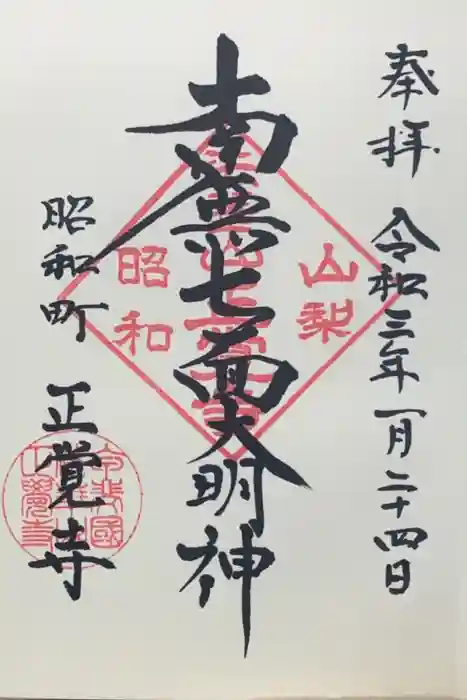 奉拝 令和三年一月二十四日
南無七面大明神
昭和町 正覚寺
山梨
昭和